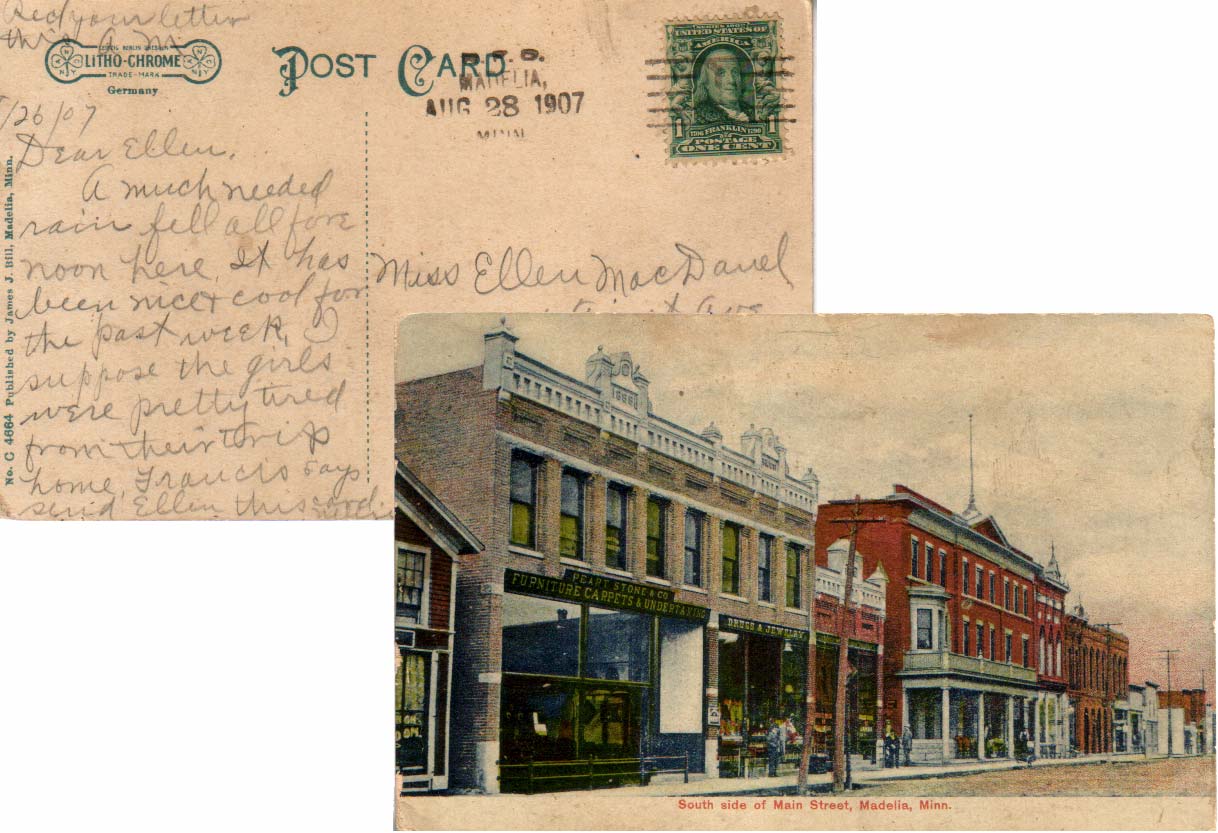 Recd your letter
this A.M.
LEIPZIG BERLIN DRESDEN
LITHO-CHROME
TRADE-MARK
Germany
N Y
N Y
POST CARD
MADELIA,
AUG 28 1907
MINN.
SERIES 1902
UNITED STATES OF
AMERICA
1706 FRANKLIN 1790
1
POSTAGE
ONE CENT
/26/07
Dear Ellen,
A much needed
rain fell all fore
noon here. It has
been nice & cool for
the past week, I
suppose the girls
were pretty tired
from their trip
home, Francis says
send Ellen this
No. C 4664 Published by James J. Bill, Madelia, Minn.
Miss Ellen MacDanel
PEART STONE & CO
FURNITURE CARPETS & UNDERTAKING
DRUGS & JEWELRY
South side of Main Street, Madelia, Minn.